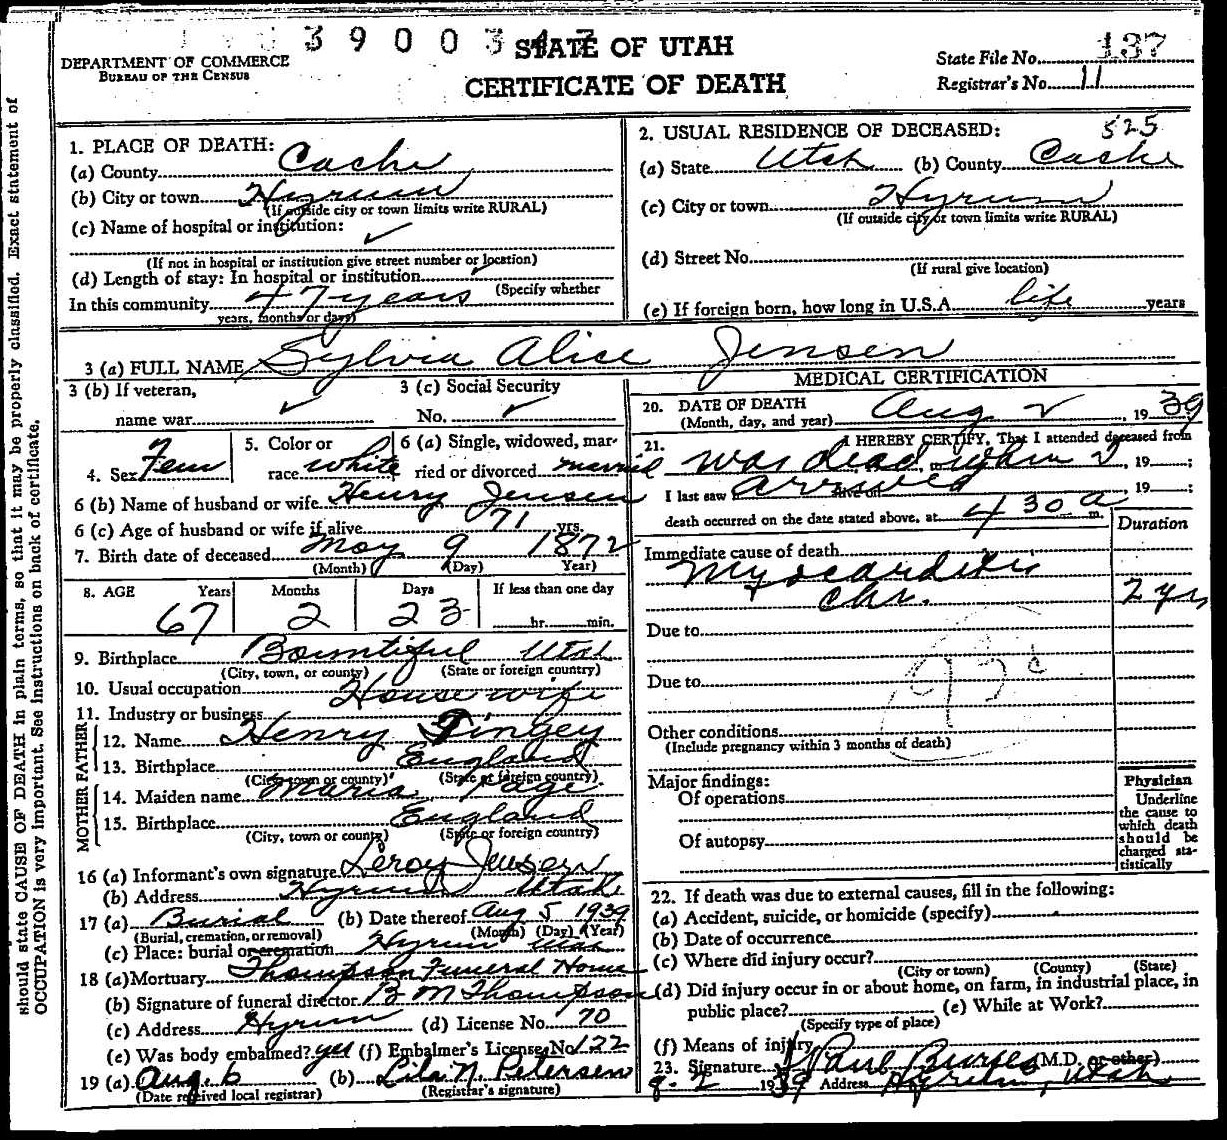 39003
STATE OF UTAH
CERTIFICATE OF DEATH
DEPARTMENT OF COMMERCE
BUREAU OF THE CENSUS
State File No. 137
Registrar's No. 11
should state CAUSE OF DEATH in plain terms, so that it may be properly classified. Exact statement of
OCCUPATION is very important. See instructions on back of certificate.
1. PLACE OF DEATH:
(a) County Cache
(b) City or town Hyrum
(If outside city or town limits write RURAL)
(c) Name of hospital or institution: ✓
(If not in hospital or institution give street number or location)
(d) Length of stay: In hospital or institution ✓
(Specify whether
In this community 47 years
years, months or days)
2. USUAL RESIDENCE OF DECEASED: 525
(a) State Utah (b) County Cache
(c) City or town Hyrum
(If outside city or town limits write RURAL)
(d) Street No.
(If rural give location)
(e) If foreign born, how long in U.S.A. life years
3 (a) FULL NAME Sylvia Alice Jensen
3 (b) If veteran,
name war ✓
3 (c) Social Security
No. ✓
4. Sex Fem
5. Color or
race white
6 (a) Single, widowed, mar-
ried or divorced married
6 (b) Name of husband or wife Henry Jensen
6 (c) Age of husband or wife if alive 71 yrs.
7. Birth date of deceased May 9 1872
(Month) (Day) Year)
8. AGE Years Months Days If less than one day
67 2 23 hr. min.
9. Birthplace Bountiful Utah
(City, town, or county) (State or foreign country)
10. Usual occupation House wife
11. Industry or business
FATHER
12. Name Henry Tingey
13. Birthplace England
(City, town or county) (State or foreign country)
MOTHER
14. Maiden name Maria Page
15. Birthplace England
(City, town or county) (State or foreign country)
16 (a) Informant's own signature Leroy Jensen
(b) Address Hyrum Utah
17 (a) Burial (b) Date thereof Aug 5 1939
(Burial, cremation, or removal) (Month) (Day) (Year)
(c) Place: burial or cremation Hyrum Utah
18 (a) Mortuary Thompson Funeral Home
(b) Signature of funeral director B M Thompson
(c) Address Hyrum (d) License No. 70
(e) Was body embalmed? yes (f) Embalmer's License No. 122
19 (a) Aug. 6 (b) Lila N. Petersen
(Date received local registrar) (Registrar's signature)
MEDICAL CERTIFICATION
20. DATE OF DEATH
(Month, day, and year) Aug 2, 1939
21. I HEREBY CERTIFY, That I attended deceased from
was dead when I, 19 ;
I last saw alive on arrived, 19 ;
death occurred on the date stated above, at 4 30 a m.
Duration
Immediate cause of death
Myocarditis
chr. 2 yrs
Due to
Due to
93c
Other conditions
(Include pregnancy within 3 months of death)
Major findings:
Of operations
Of autopsy
Physician
Underline
the cause to
which death
should be
charged sta-
tistically
22. If death was due to external causes, fill in the following:
(a) Accident, suicide, or homicide (specify)
(b) Date of occurrence
(c) Where did injury occur?
(City or town) (County) (State)
(d) Did injury occur in or about home, on farm, in industrial place, in
public place? (e) While at Work?
(Specify type of place)
(f) Means of injury
23. Signature J Paul Burgess (M.D. or other)
8-2 1939 Address Hyrum, Utah